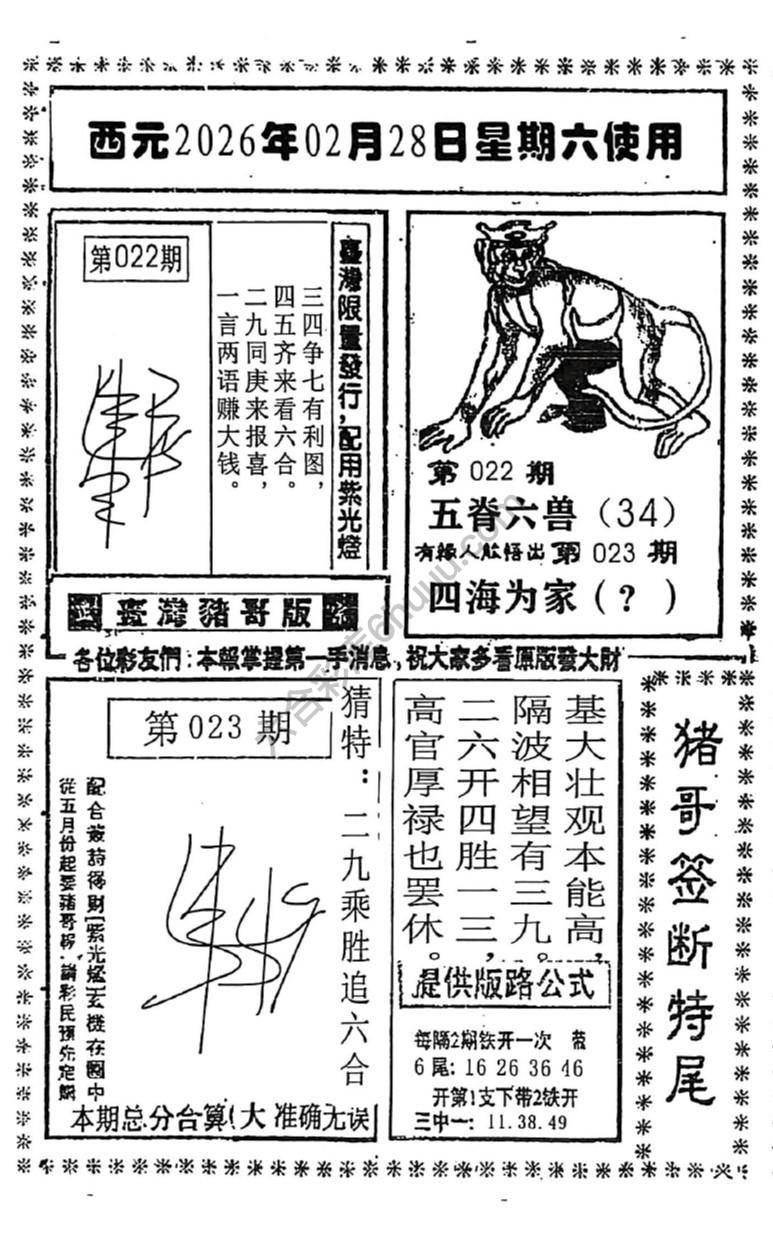 西元2026年02月28日星期六使用
第022期
三四争七有利图，
四五齐来看六合。
二九同庚来报喜，
一言两语赚大钱。
臺灣限量發行，配用紫光燈
臺灣豬哥版
第022期
五脊六兽（34）
有緣人能悟出第023期
四海为家（？）
各位彩友們：本報掌握第一手消息，祝大家多看原版發大財
第023期
猜特：二九乘胜追六合
從五月份起要豬哥報，請彩民預先定購
本期总分合算(大 准确无误
基大壮观本能高，
隔波相望有三九。
二六开四胜一三，
高官厚禄也罢休。
提供版路公式
每隔2期铁开一次
6尾: 16 26 36 46
开第1支下带2铁开
三中一: 11.38.49
猪哥签断特尾
六合彩库6huuu.com